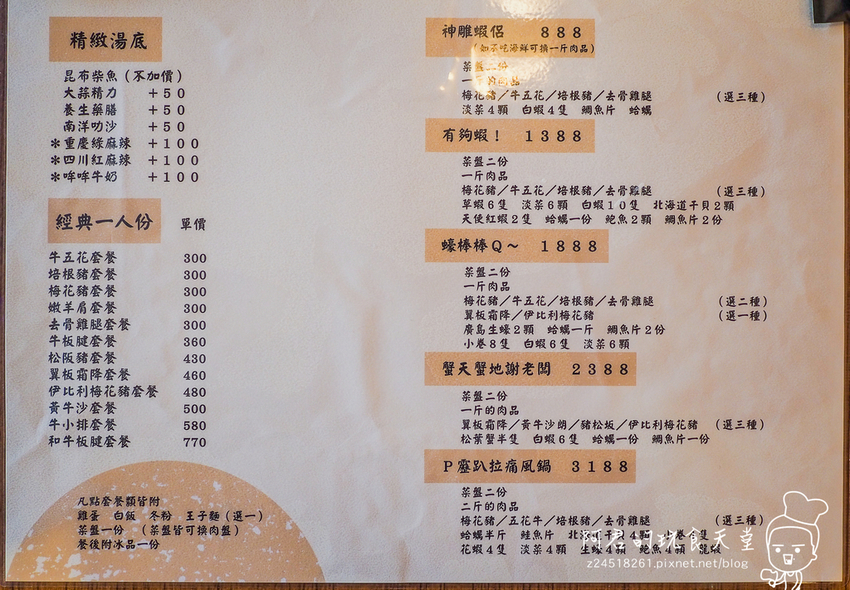 精緻湯底
昆布柴魚（不加價）
大蒜精力 +50
養生藥膳 +50
南洋叻沙 +50
*重慶綠麻辣 +100
*四川紅麻辣 +100
*哞哞牛奶 +100
經典一人份 單價
牛五花套餐 300
培根豬套餐 300
梅花豬套餐 300
嫩羊肩套餐 300
去骨雞腿套餐 300
牛板腱套餐 360
松阪豬套餐 430
翼板霜降套餐 460
伊比利梅花豬套餐 480
黃牛沙套餐 500
牛小排套餐 580
和牛板腱套餐 770
凡點套餐類皆附
雞蛋 白飯 冬粉 王子麵（選一）
菜盤一份 （菜盤皆可換肉盤）
餐後附冰品一份
神雕蝦侶 888
（如不吃海鮮可換一斤肉品）
菜盤二份
一斤的肉品
梅花豬／牛五花／培根豬／去骨雞腿 （選三種）
淡菜4顆 白蝦4隻 鯛魚片 蛤蠣
有夠蝦！ 1388
菜盤二份
一斤肉品
梅花豬／牛五花／培根豬／去骨雞腿 （選三種）
草蝦6隻 淡菜6顆 白蝦10隻 北海道干貝2顆
天使紅蝦2隻 蛤蠣一份 鮑魚2顆 鯛魚片2份
蠔棒棒Q～ 1888
菜盤二份
一斤肉品
梅花豬／牛五花／培根豬／去骨雞腿 （選二種）
翼板霜降／伊比利梅花豬 （選一種）
廣島生蠔2顆 蛤蠣一斤 鯛魚片2份
小卷8隻 白蝦6隻 淡菜6顆
蟹天蟹地謝老闆 2388
菜盤二份
一斤的肉品
翼板霜降／黃牛沙朗／豬松坂／伊比利梅花豬 （選三種）
松葉蟹半隻 白蝦6隻 蛤蠣一份 鯛魚片一份
P靂趴拉痛風鍋 3188
菜盤二份
二斤的肉品
梅花豬／五花牛／培根豬／去骨雞腿 （選三種）
蛤蠣半斤 鮭魚片 北海道干貝4顆 小卷6隻
花蝦4隻 淡菜4顆 生蠔4顆 鮑魚4顆 龍蝦
阿君的玩食天堂
z24518261.pixnet.net/blog